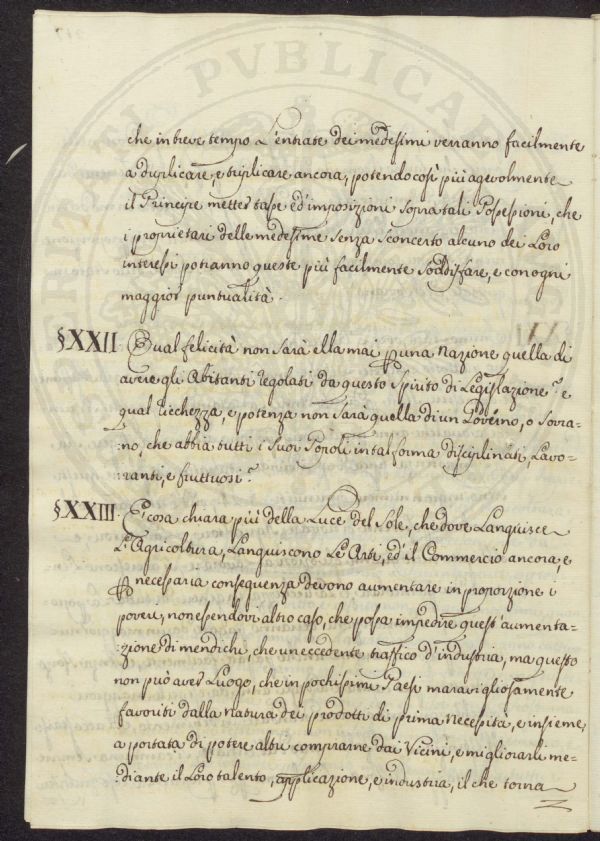 che in breve tempo L'entrate dei medesimi verranno facilmente
a duplicare, e triplicare ancora, potendo così più agevolmente
il Principe metter tasse ed'imposizioni sopra tali Possessioni, che
i proprietarj delle medesime senza sconcerto alcuno dei Loro
interessi potranno queste più facilmente soddisfare, e con ogni
maggior puntualità.
§XXII Qual felicità non sarà ella mai p una Nazione quella di
avere gli Abitanti regolati da questo spirito di Legislazione? e
qual ricchezza, e potenza non sarà quella di un Governo, o Sovra-
:no, che abbia tutti i suoi Popoli in tal forma disciplinati, Lavo-
:ranti, e fruttuosi?
§XXIII. E' cosa chiara più della Luce del Sole, che dove Languisce
L'Agricoltura, Languiscono Le Arti, ed'il Commercio ancora, e
p necessaria conseguenza devono aumentare in proporzione i
poveri, non essendovi altro caso, che possa impedire quest'aumenta-
:zione di mendichi, che un eccedente traffico d'industria, ma questo
non può aver Luogo, che in pochissimi Paesi maravigliosamente
favoriti dalla Natura dei prodotti di prima necessità, e insieme,
a portata di potere altri comprarne dai Vicini, e migliorarli me-
:diante il Loro talento, applicazione, e industria, il che torna
PVBLICAE